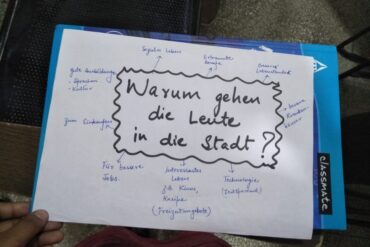 Modern Leben
bessere
Lebensstandard
gute Ausbildung
- Sprachen
- Kultur
- bessere
Warum gehen
die Leute
in die Stadt?
zum Einkaufen
Für bessere
Jobs.
Interessantes
Leben
z.B. Kinos,
Kneipe
(Freizeitangebote)
Technologie
(Fortschritt)
classmate